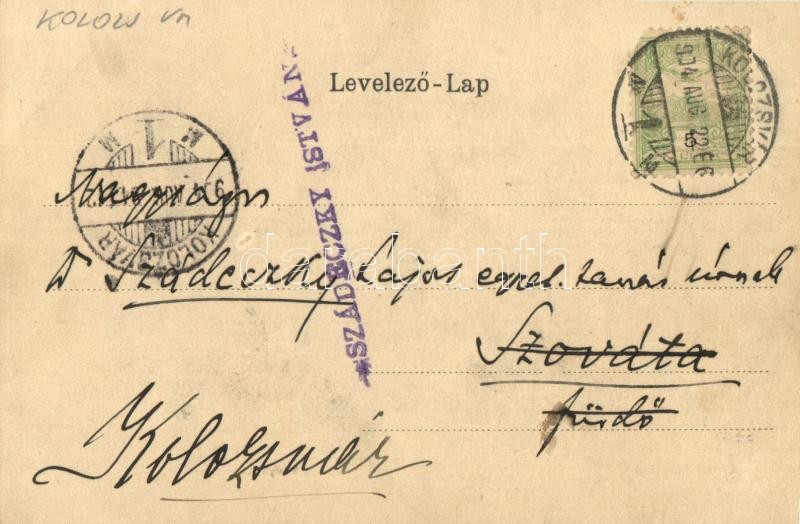 KOLOZS Vm
Levelező-Lap
KOLOZSVÁR
904 AUG 22
5
KOLOZSVÁR
SZÁDECZKY ISTVÁN
Nagyságos
Dr Szádeczky Lajos egyet. tanár úrnak
Szováta
fürdő
Kolozsvár
darabanth